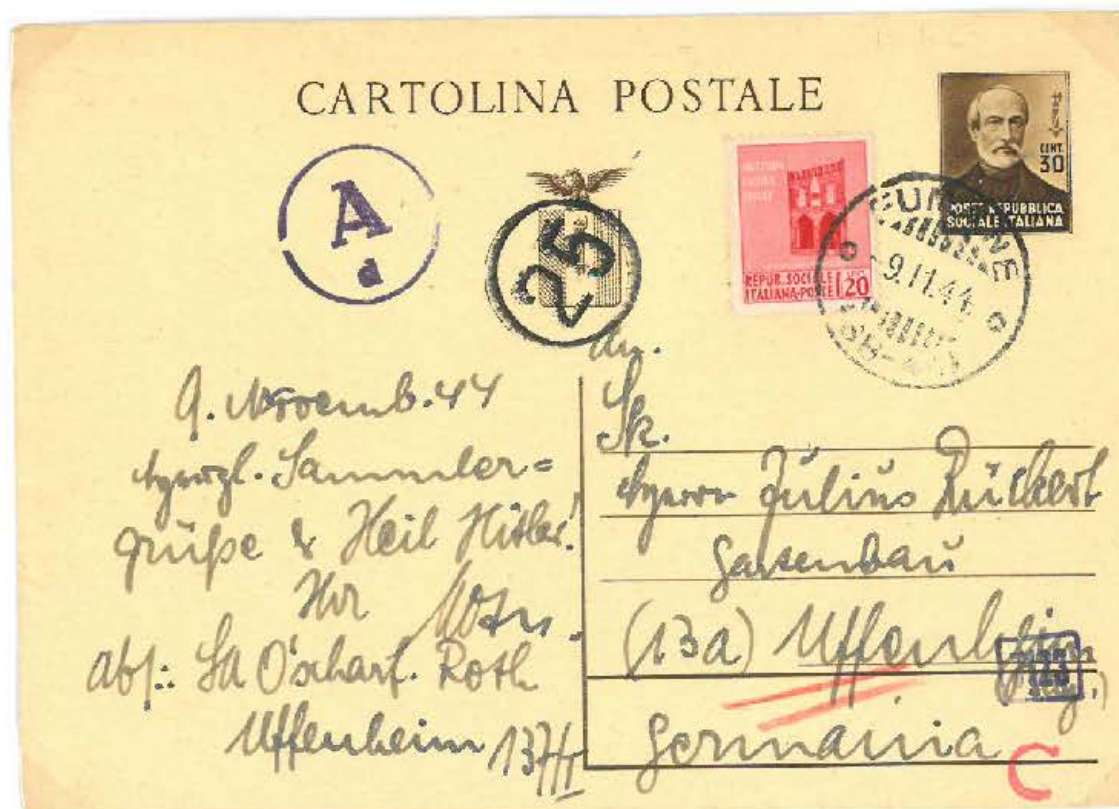 CARTOLINA POSTALE
CENT.
30
POSTE REPUBBLICA
SOCIALE ITALIANA
A
d
25
REPUB. SOCIALE
ITALIANA-POSTE
20
9.11.44
9. Novemb. 44
herzgl. Sammler=
grüße & Heil Hitler!
Ihr
Abs.: SA O'scharf. Roth
Uffenheim 137
An.
Herrn Julius Rückert
Gartenbau
(13a) Uffenheim
Germania
C